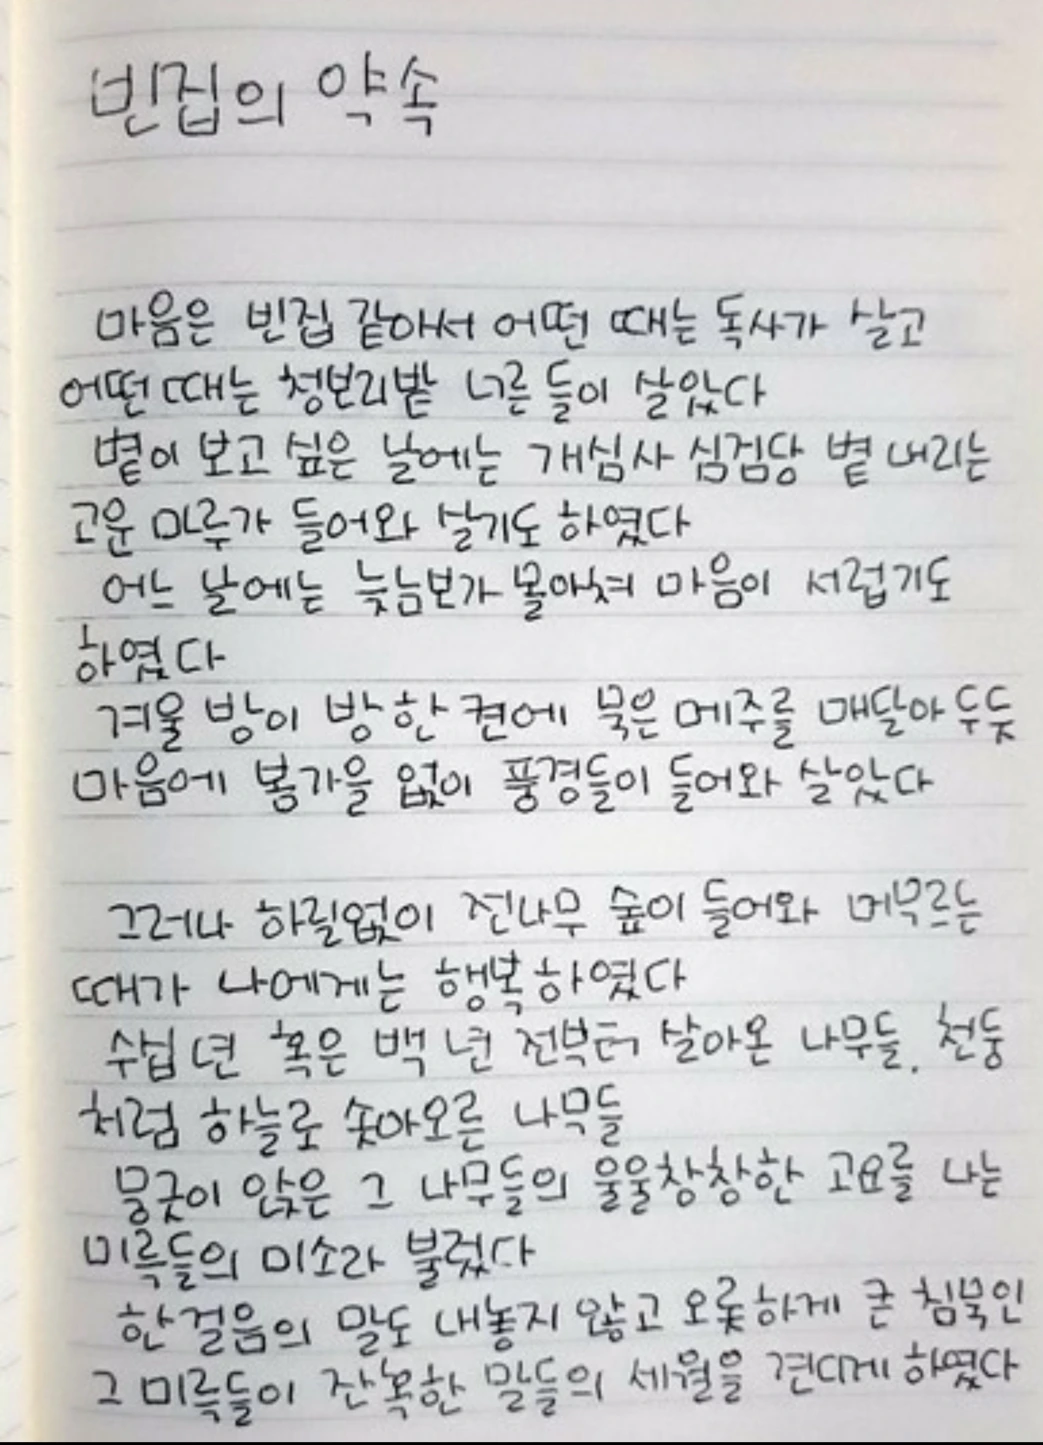 빈집의 약속
마음은 빈집 같아서 어떤 때는 독사가 살고
어떤 때는 청보리밭 너른 들이 살았다
볕이 보고 싶은 날에는 개심사 심검당 볕 내리는
고운 마루가 들어와 살기도 하였다
어느 날에는 늦눔보가 몰아쳐 마음이 서럽기도
하였다
겨울 방이 방 한 켠에 묵은 메주를 매달아 두듯
마음에 봄가을 없이 풍경들이 들어와 살았다
그러나 하릴없이 전나무 숲이 들어와 머무르는
때가 나에게는 행복하였다
수십 년 혹은 백 년 전부터 살아온 나무들, 천둥
처럼 하늘로 솟아오른 나무들
뭉긋이 앉은 그 나무들의 울울창창한 고요를 나는
미륵들의 미소라 불렀다
한 걸음의 말도 내놓지 않고 오롯하게 큰 침묵인
그 미륵들이 잔혹한 말들의 세월을 견디게 하였다